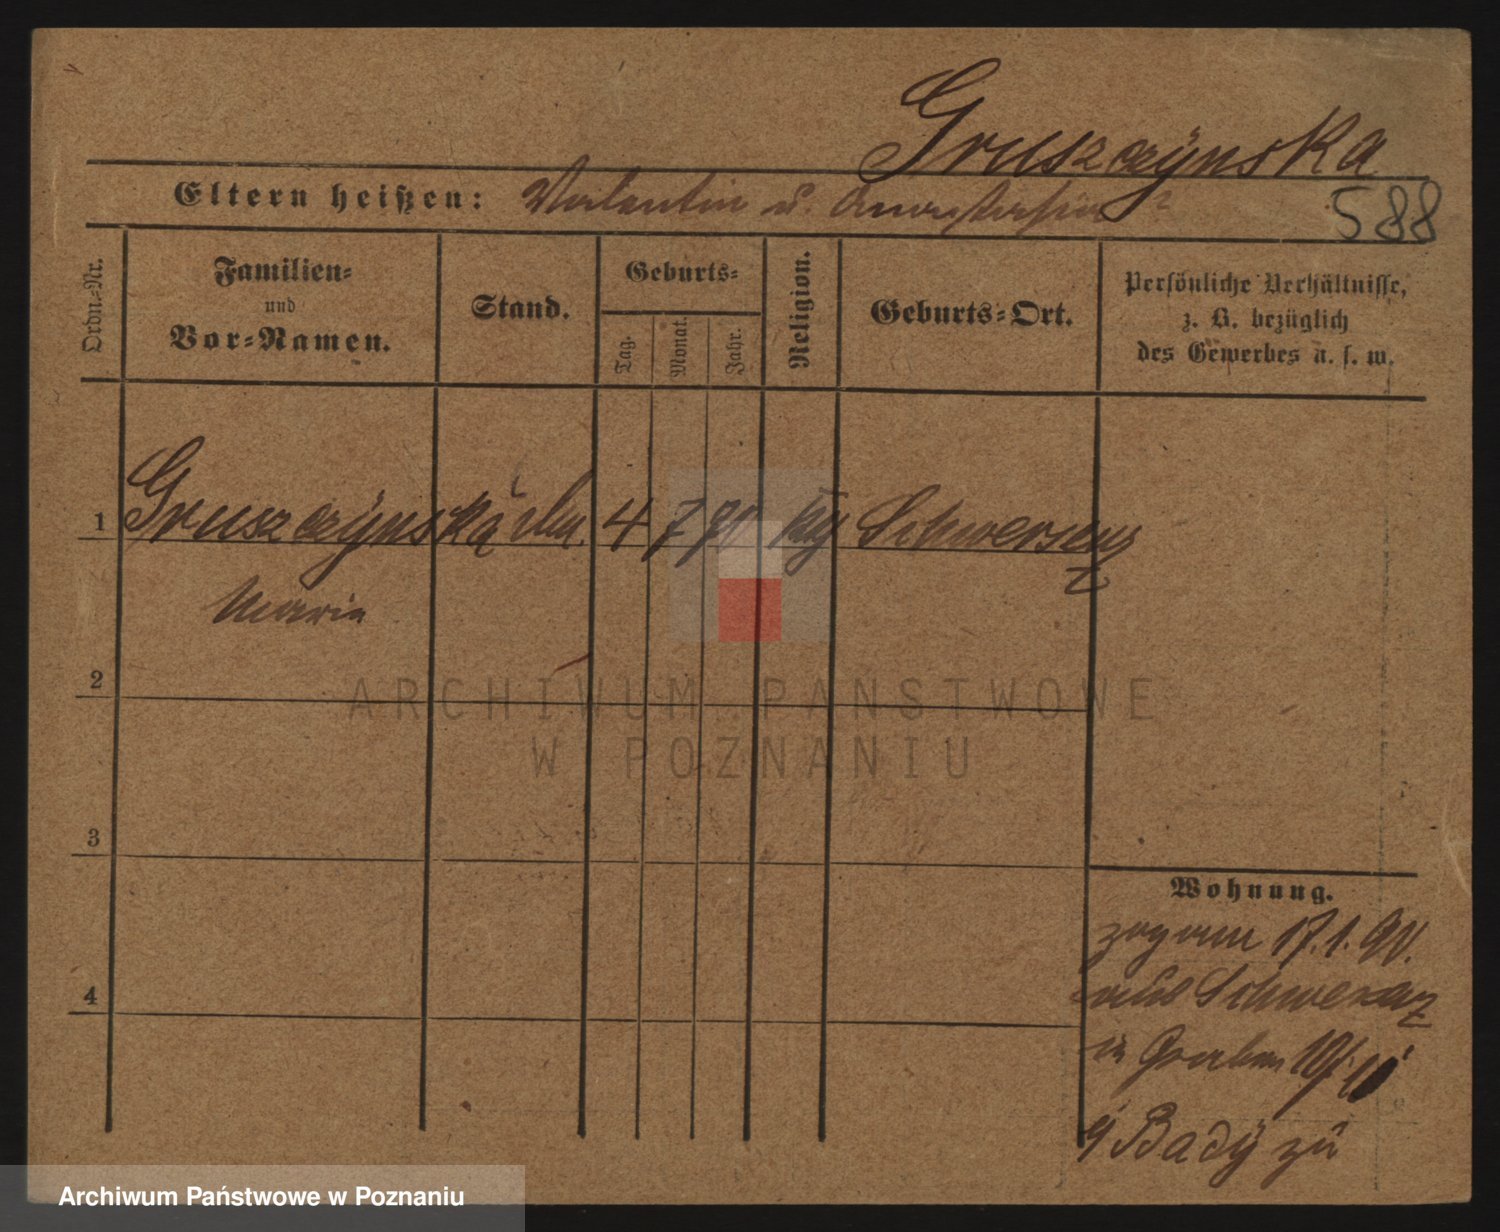 Gruszczÿnska
Eltern heißen: Valentin u. Anastasia
588
Ordn.-Nr.
Familien-
und
Vor-Namen.
Stand.
Geburts-
Tag.
Monat.
Jahr.
Religion.
Geburts-Ort.
Persönliche Verhältnisse,
z. B. bezüglich
des Gewerbes u. s. w.
1
Gruszczÿnska 4 7 70 Schwersenz
Marie
2
3
4
Wohnung.
zog am 17.1.90.
aus Schwersenz
in Graben
Bady zu
ARCHIWUM PAŃSTWOWE
W POZNANIU
Archiwum Państwowe w Poznaniu